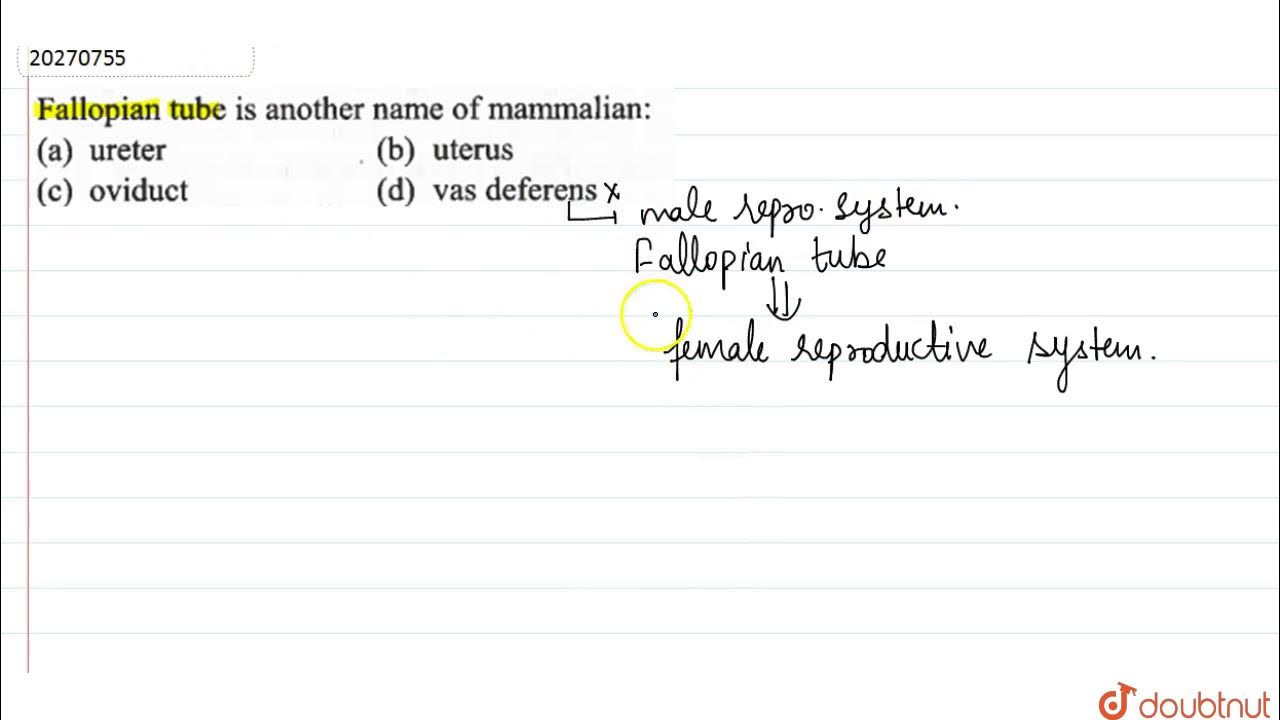 20270755
Fallopian tube is another name of mammalian:
(a) ureter (b) uterus
(c) oviduct (d) vas deferens x
male repro. system.
Fallopian tube
female reproductive system.
doubtnut